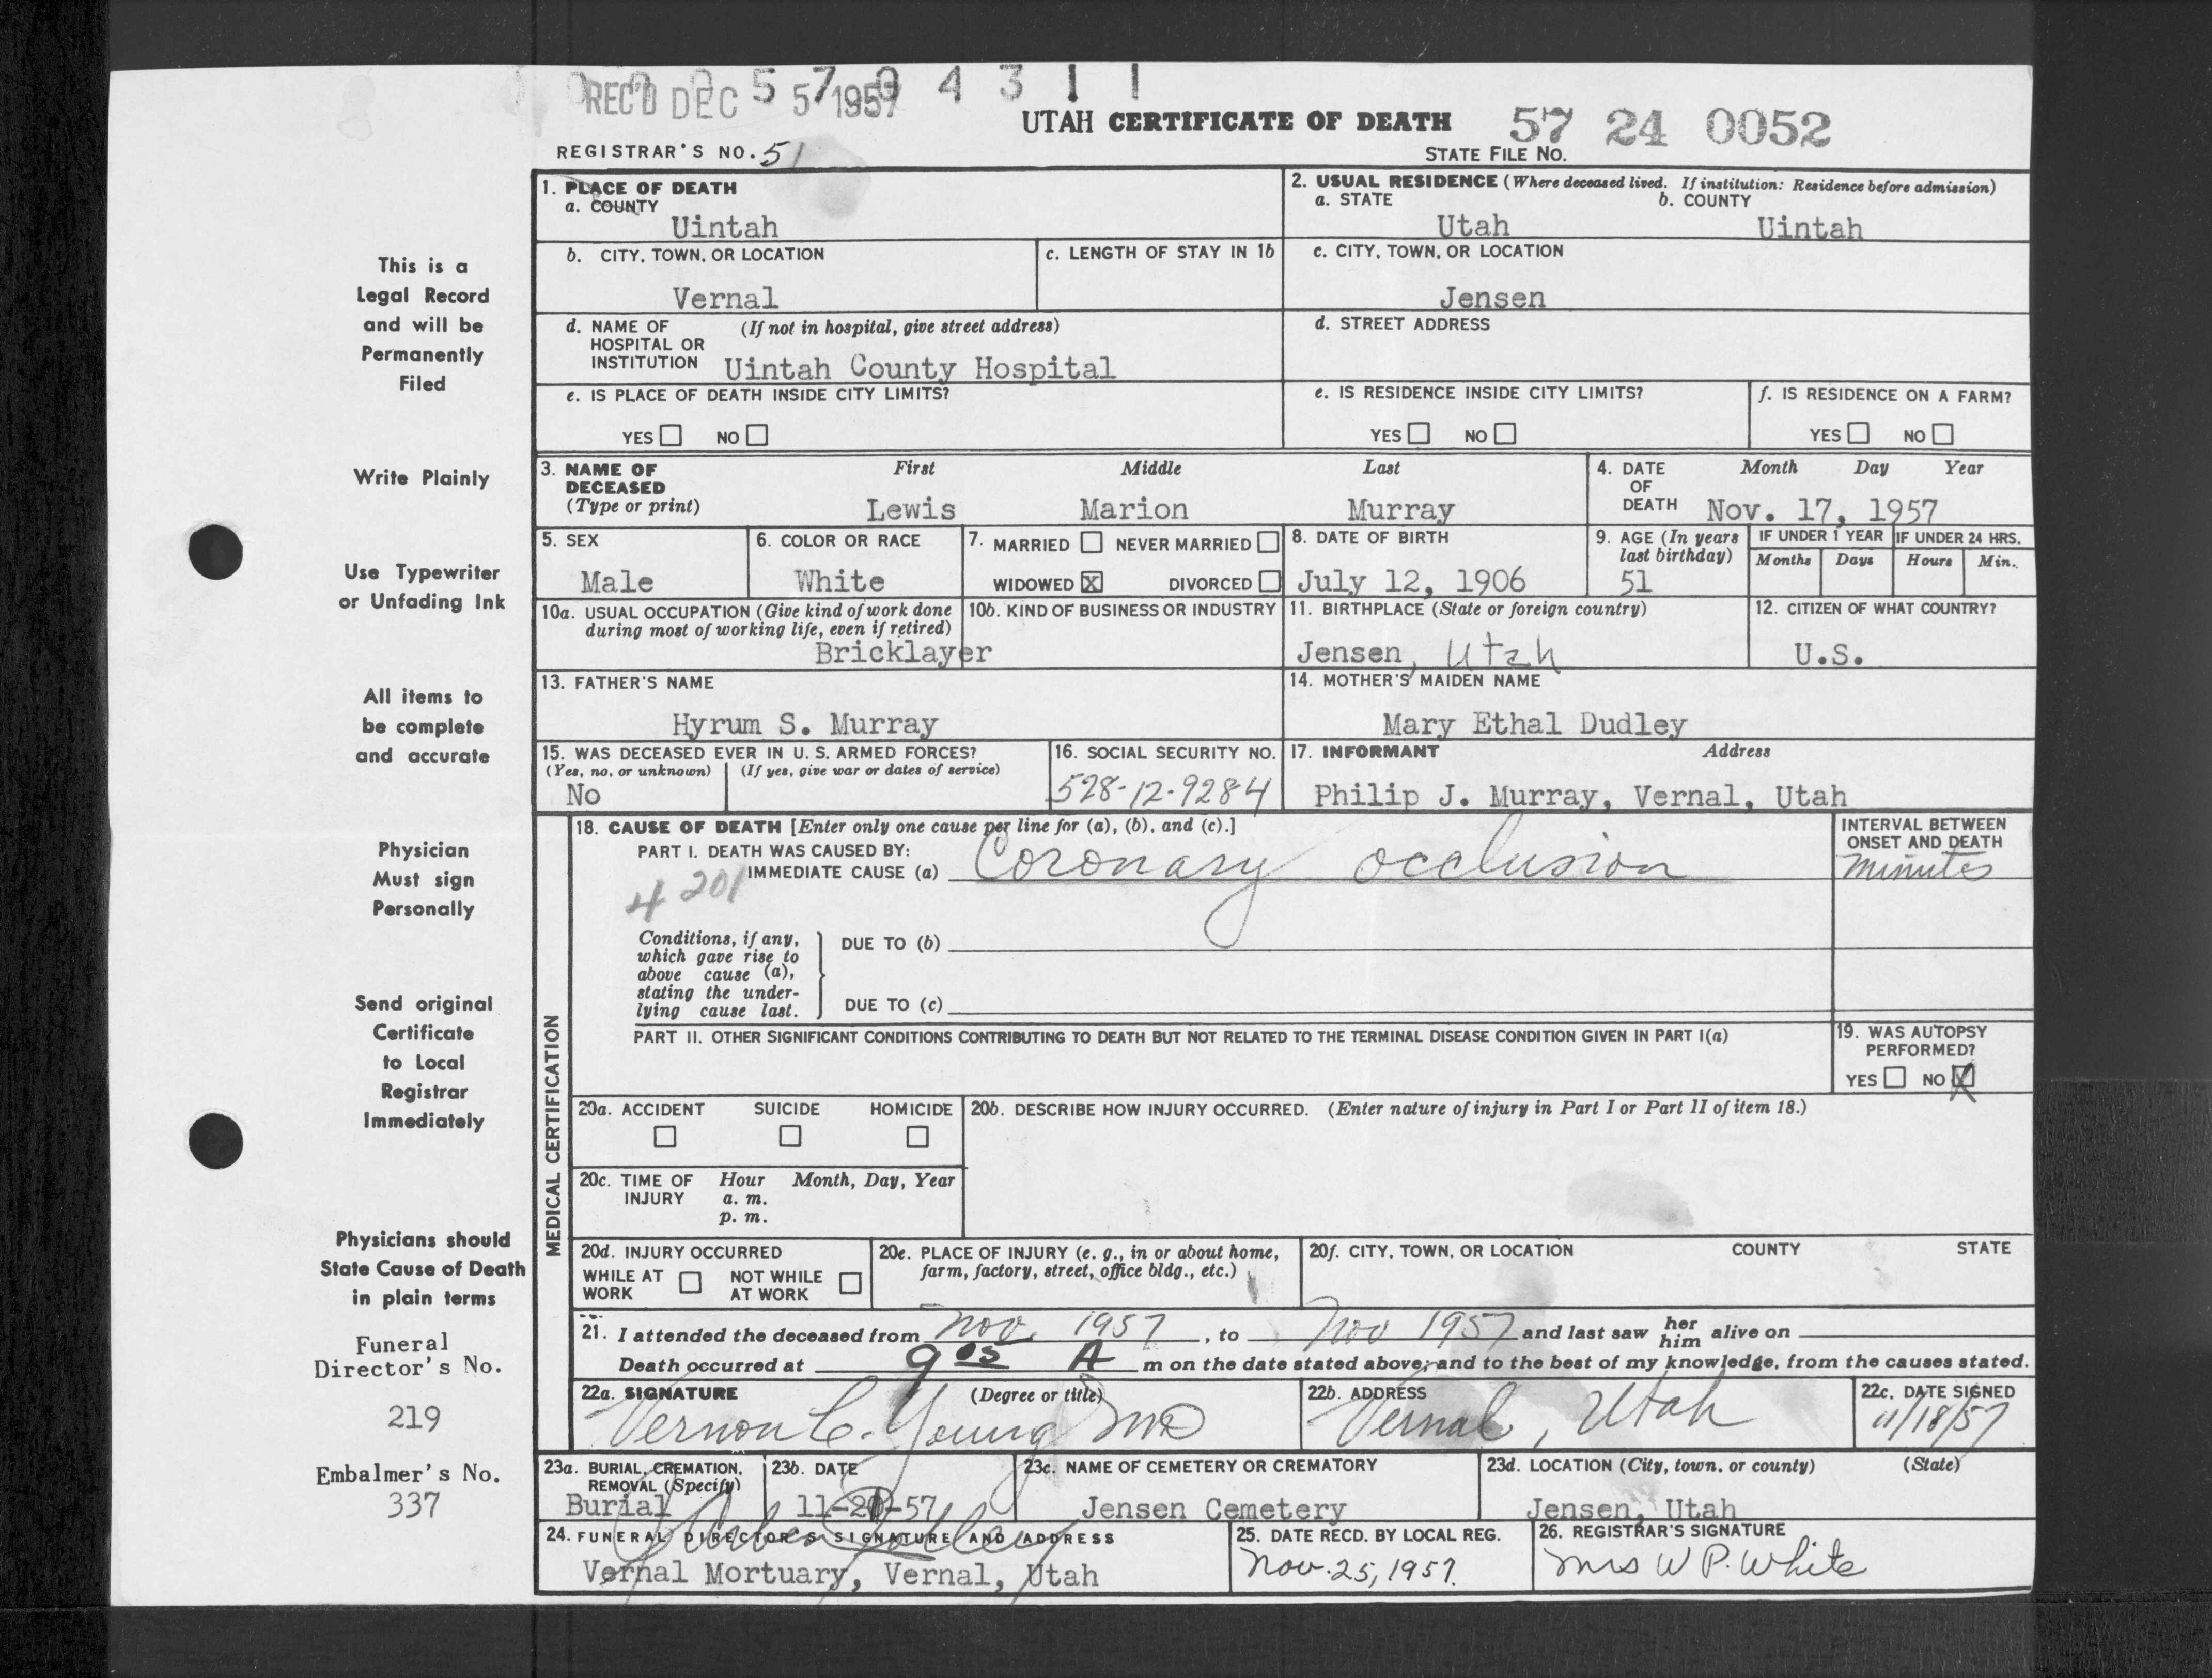 REC'D DEC 5 1957
5 7 0 4 3 1 1
UTAH CERTIFICATE OF DEATH 57 24 0052
REGISTRAR'S NO. 51 STATE FILE NO.
1. PLACE OF DEATH
a. COUNTY
Uintah
2. USUAL RESIDENCE (Where deceased lived. If institution: Residence before admission)
a. STATE b. COUNTY
Utah Uintah
b. CITY, TOWN, OR LOCATION
Vernal
c. LENGTH OF STAY IN 1b
c. CITY, TOWN, OR LOCATION
Jensen
d. NAME OF (If not in hospital, give street address)
HOSPITAL OR
INSTITUTION Uintah County Hospital
d. STREET ADDRESS
e. IS PLACE OF DEATH INSIDE CITY LIMITS?
YES NO
e. IS RESIDENCE INSIDE CITY LIMITS?
YES NO
f. IS RESIDENCE ON A FARM?
YES NO
3. NAME OF DECEASED (Type or print)
First Middle Last
Lewis Marion Murray
4. DATE OF DEATH
Month Day Year
Nov. 17, 1957
5. SEX
Male
6. COLOR OR RACE
White
7. MARRIED NEVER MARRIED
WIDOWED X DIVORCED
8. DATE OF BIRTH
July 12, 1906
9. AGE (In years last birthday)
51
IF UNDER 1 YEAR
Months Days
IF UNDER 24 HRS.
Hours Min.
10a. USUAL OCCUPATION (Give kind of work done
during most of working life, even if retired)
Bricklayer
10b. KIND OF BUSINESS OR INDUSTRY
11. BIRTHPLACE (State or foreign country)
Jensen, Utah
12. CITIZEN OF WHAT COUNTRY?
U.S.
13. FATHER'S NAME
Hyrum S. Murray
14. MOTHER'S MAIDEN NAME
Mary Ethal Dudley
15. WAS DECEASED EVER IN U. S. ARMED FORCES?
(Yes, no, or unknown) (If yes, give war or dates of service)
No
16. SOCIAL SECURITY NO.
528-12-9284
17. INFORMANT Address
Philip J. Murray, Vernal, Utah
MEDICAL CERTIFICATION
18. CAUSE OF DEATH [Enter only one cause per line for (a), (b), and (c).]
PART I. DEATH WAS CAUSED BY:
IMMEDIATE CAUSE (a) Coronary occlusion
4 201
INTERVAL BETWEEN
ONSET AND DEATH
minutes
Conditions, if any,
which gave rise to
above cause (a),
stating the under-
lying cause last.
DUE TO (b)
DUE TO (c)
PART II. OTHER SIGNIFICANT CONDITIONS CONTRIBUTING TO DEATH BUT NOT RELATED TO THE TERMINAL DISEASE CONDITION GIVEN IN PART I(a)
19. WAS AUTOPSY
PERFORMED?
YES NO X
20a. ACCIDENT SUICIDE HOMICIDE
20b. DESCRIBE HOW INJURY OCCURRED. (Enter nature of injury in Part I or Part II of item 18.)
20c. TIME OF INJURY
Hour Month, Day, Year
a. m.
p. m.
20d. INJURY OCCURRED
WHILE AT WORK NOT WHILE AT WORK
20e. PLACE OF INJURY (e. g., in or about home,
farm, factory, street, office bldg., etc.)
20f. CITY, TOWN, OR LOCATION COUNTY STATE
21. I attended the deceased from Nov. 1957, to Nov 1957 and last saw her him alive on
Death occurred at 9 05 A m on the date stated above; and to the best of my knowledge, from the causes stated.
22a. SIGNATURE (Degree or title)
Vernon C. Young MD
22b. ADDRESS
Vernal, Utah
22c. DATE SIGNED
11/18/57
23a. BURIAL, CREMATION,
REMOVAL (Specify)
Burial
23b. DATE
11-20-57
23c. NAME OF CEMETERY OR CREMATORY
Jensen Cemetery
23d. LOCATION (City, town, or county) (State)
Jensen, Utah
24. FUNERAL DIRECTOR'S SIGNATURE AND ADDRESS
Vernal Mortuary, Vernal, Utah
25. DATE RECD. BY LOCAL REG.
Nov. 25, 1957.
26. REGISTRAR'S SIGNATURE
Mrs W P. White
This is a
Legal Record
and will be
Permanently
Filed
Write Plainly
Use Typewriter
or Unfading Ink
All items to
be complete
and accurate
Physician
Must sign
Personally
Send original
Certificate
to Local
Registrar
Immediately
Physicians should
State Cause of Death
in plain terms
Funeral
Director's No.
219
Embalmer's No.
337